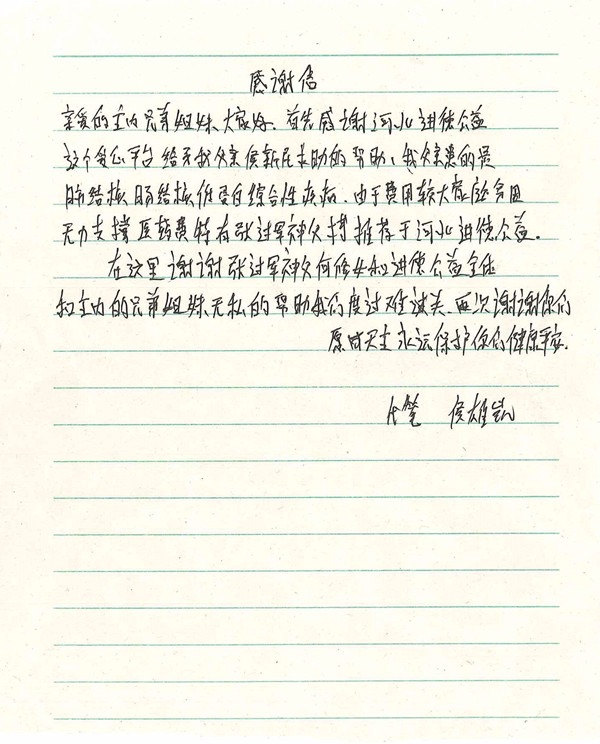 感谢信
亲爱的主内兄弟姐妹、大家好. 首先感谢河北进德公益
这个爱心平台给予我父亲侯新民求助的帮助、我父亲患的是
肺结核、肠结核低蛋白综合性疾病. 由于费用较大家庭贫困
无力支撑医药费特有张过军神父 推荐于河北进德公益.
在这里谢谢张过军神父何修女和进德公益全体
和主内的兄弟姐妹、无私的帮助我们度过难关. 再次谢谢你们
愿天主永远保护你们健康平安.
代笔 侯雄凯